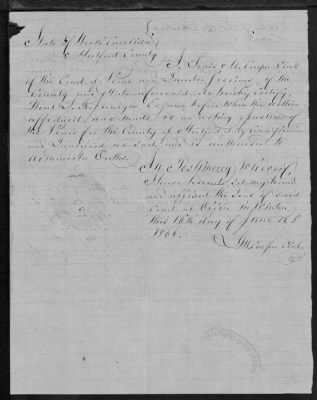 State of North Carolina
Hertford County
I, Lewis M. Cowper Clerk
of the Court of Pleas and Quarter Sessions, of the
County and State aforesaid do hereby certify
that Esquire before whom the within
affidavit was made is an acting Justice of
the Peace for the County of Hertford duly commissioned
and qualified as such and is authorized to
administer Oaths.
In Testimony Whereof,
I have hereunto set my hand
and affixed the Seal of said
Court at Office in Winton
this 16th day of June A D
1866.
L M Cowper Clerk